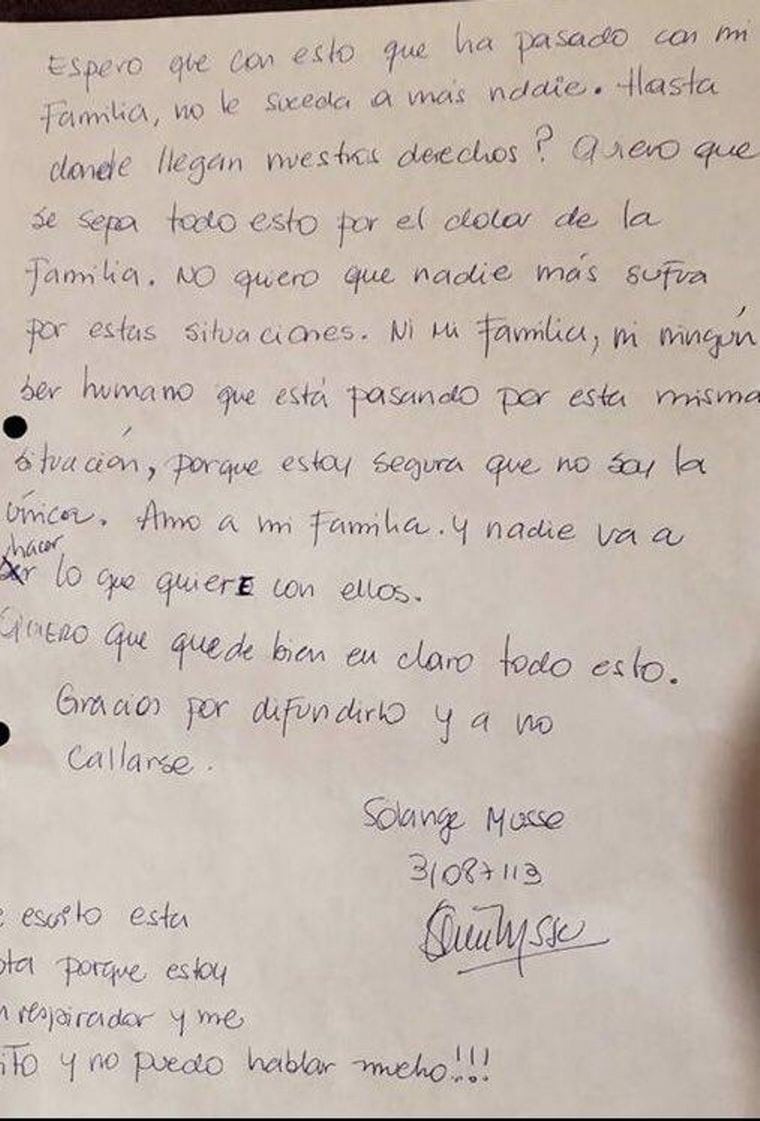 Espero que con esto que ha pasado con mi
Familia, no le suceda a más nadie. Hasta
donde llegan nuestros derechos? Quiero que
se sepa todo esto por el dolor de la
Familia. NO quiero que nadie más sufra
por estas situaciones. Ni mi Familia, ni ningún
ser humano que está pasando por esta misma
situación, porque estoy segura que no soy la
única. Amo a mi Familia. y nadie va a
hacer lo que quiere con ellos.
Quiero que quede bien en claro todo esto.
Gracias por difundirlo y a no
Callarse.
Solange Musse
31087113
escrito esta
ota porque estoy
n respirador y me
ito y no puedo hablar mucho!!!